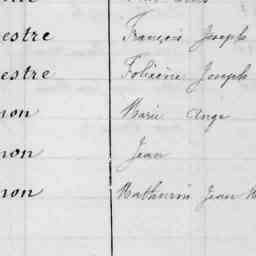 estre François Joseph
estre Félicine Joseph
non Marie Ange
non Jean
non Mathurin Jean